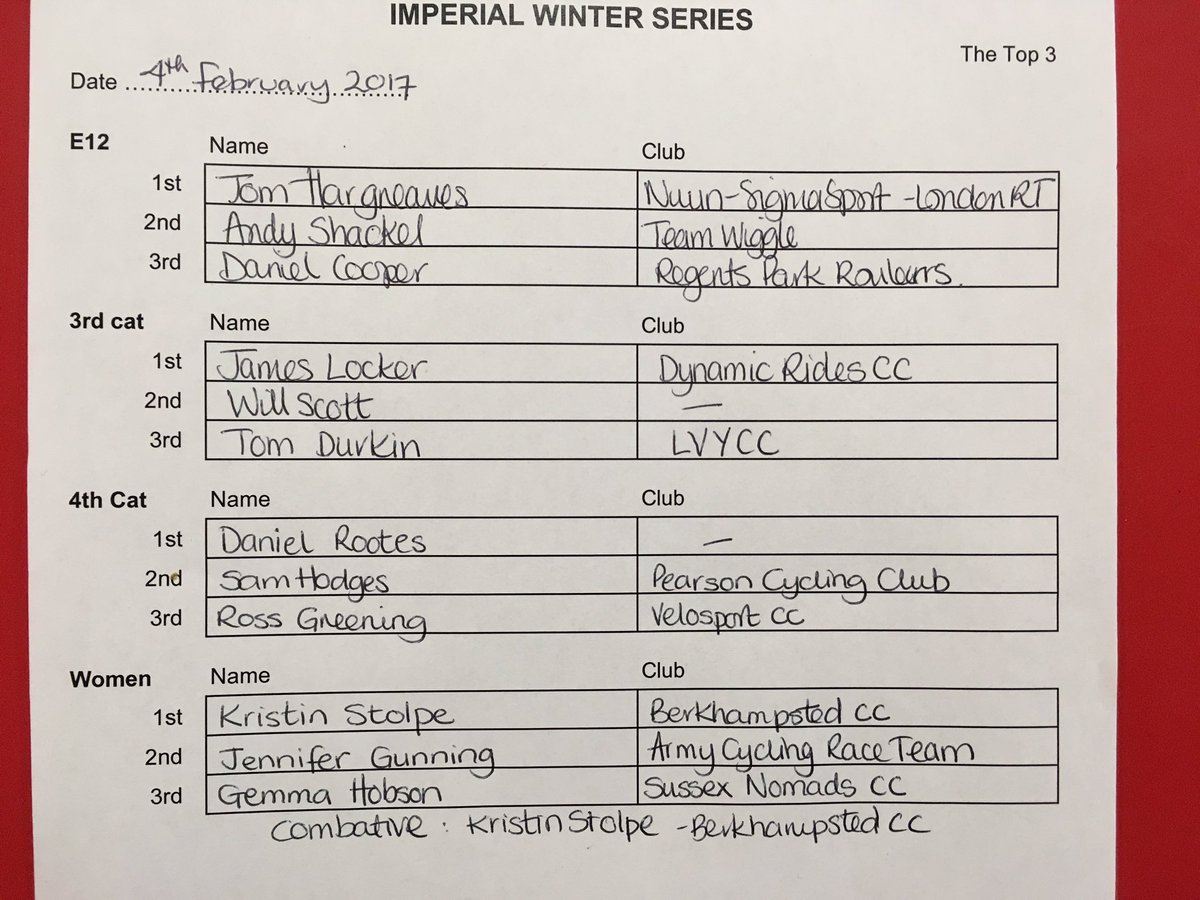 IMPERIAL WINTER SERIES
The Top 3
Date 4th February 2017
E12 Name Club
1st Tom Hargreaves Nuun-SigmaSport -London RT
2nd Andy Shackel Team Wiggle
3rd Daniel Cooper Regents Park Rouleurs.
3rd cat Name Club
1st James Locker Dynamic Rides CC
2nd Will Scott —
3rd Tom Durkin LVYCC
4th Cat Name Club
1st Daniel Rootes —
2nd Sam Hodges Pearson Cycling Club
3rd Ross Greening Velosport CC
Women Name Club
1st Kristin Stolpe Berkhampsted CC
2nd Jennifer Gunning Army Cycling Race Team
3rd Gemma Hobson Sussex Nomads CC
Combative : Kristin Stolpe -Berkhampsted CC